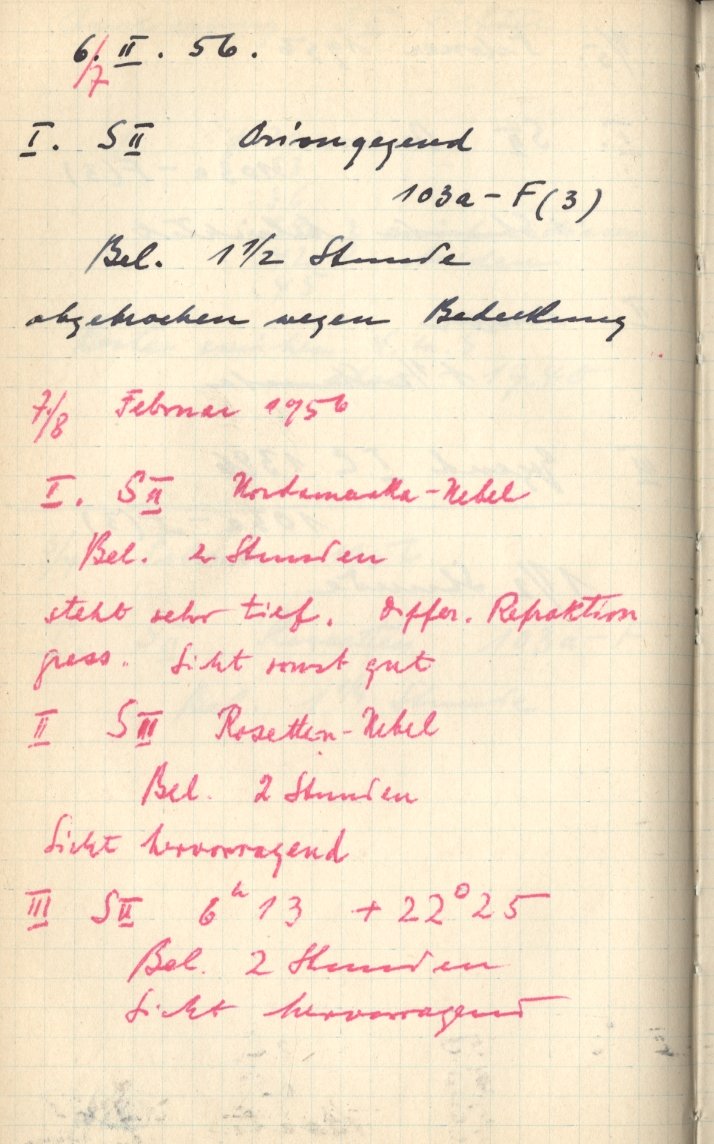 6./7 II. 56.
I. S II Oriongegend
103a-F(3)
Bel. 1 1/2 Stunde
abgebrochen wegen Bedeckung
7./8 Februar 1956
I. S II Nordamerika-Nebel
Bel. 2 Stunden
steht sehr tief. Differ. Refraktion
gross. Sicht sonst gut
II S III Rosetten-Nebel
Bel. 2 Stunden
Sicht hervorragend
III S II 6h 13 + 22° 25
Bel. 2 Stunden
Sicht hervorragend